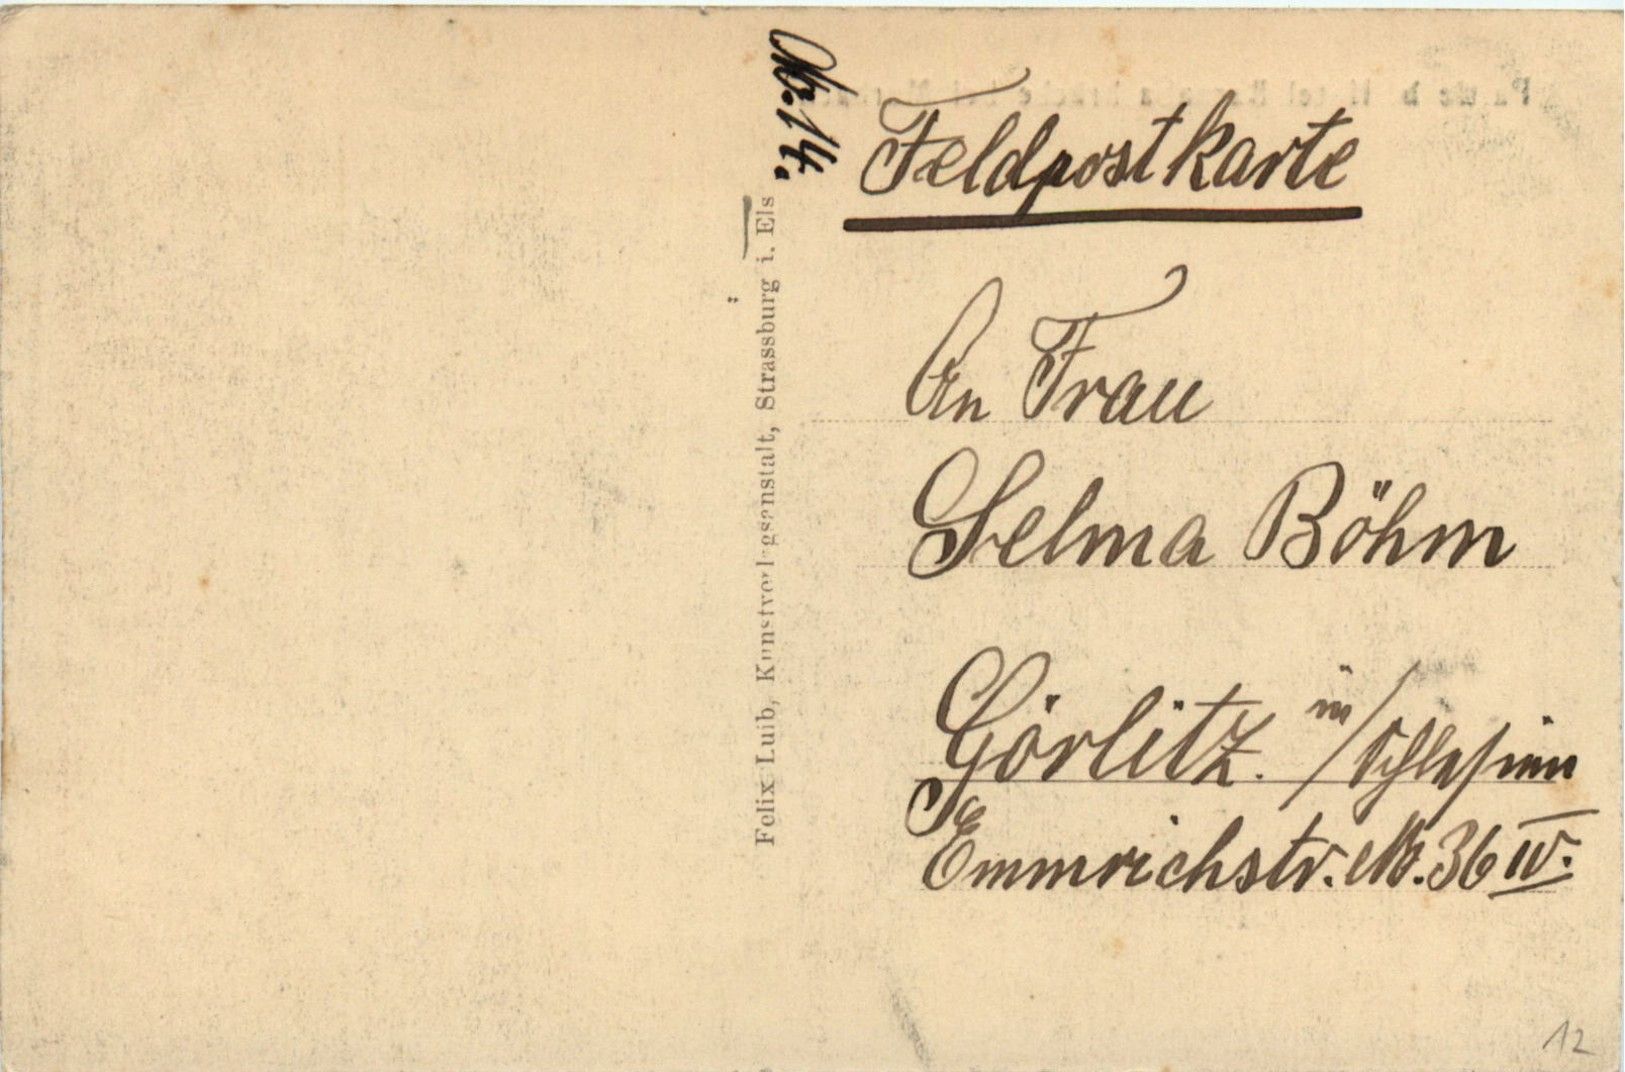 No. 14.
Feldpostkarte
An Frau
Selma Böhm
Görlitz. in/Schlesien
Emmrichstr. No. 36 IV.
Felix Luib, Kunstverlagsanstalt, Strassburg i. Els
12